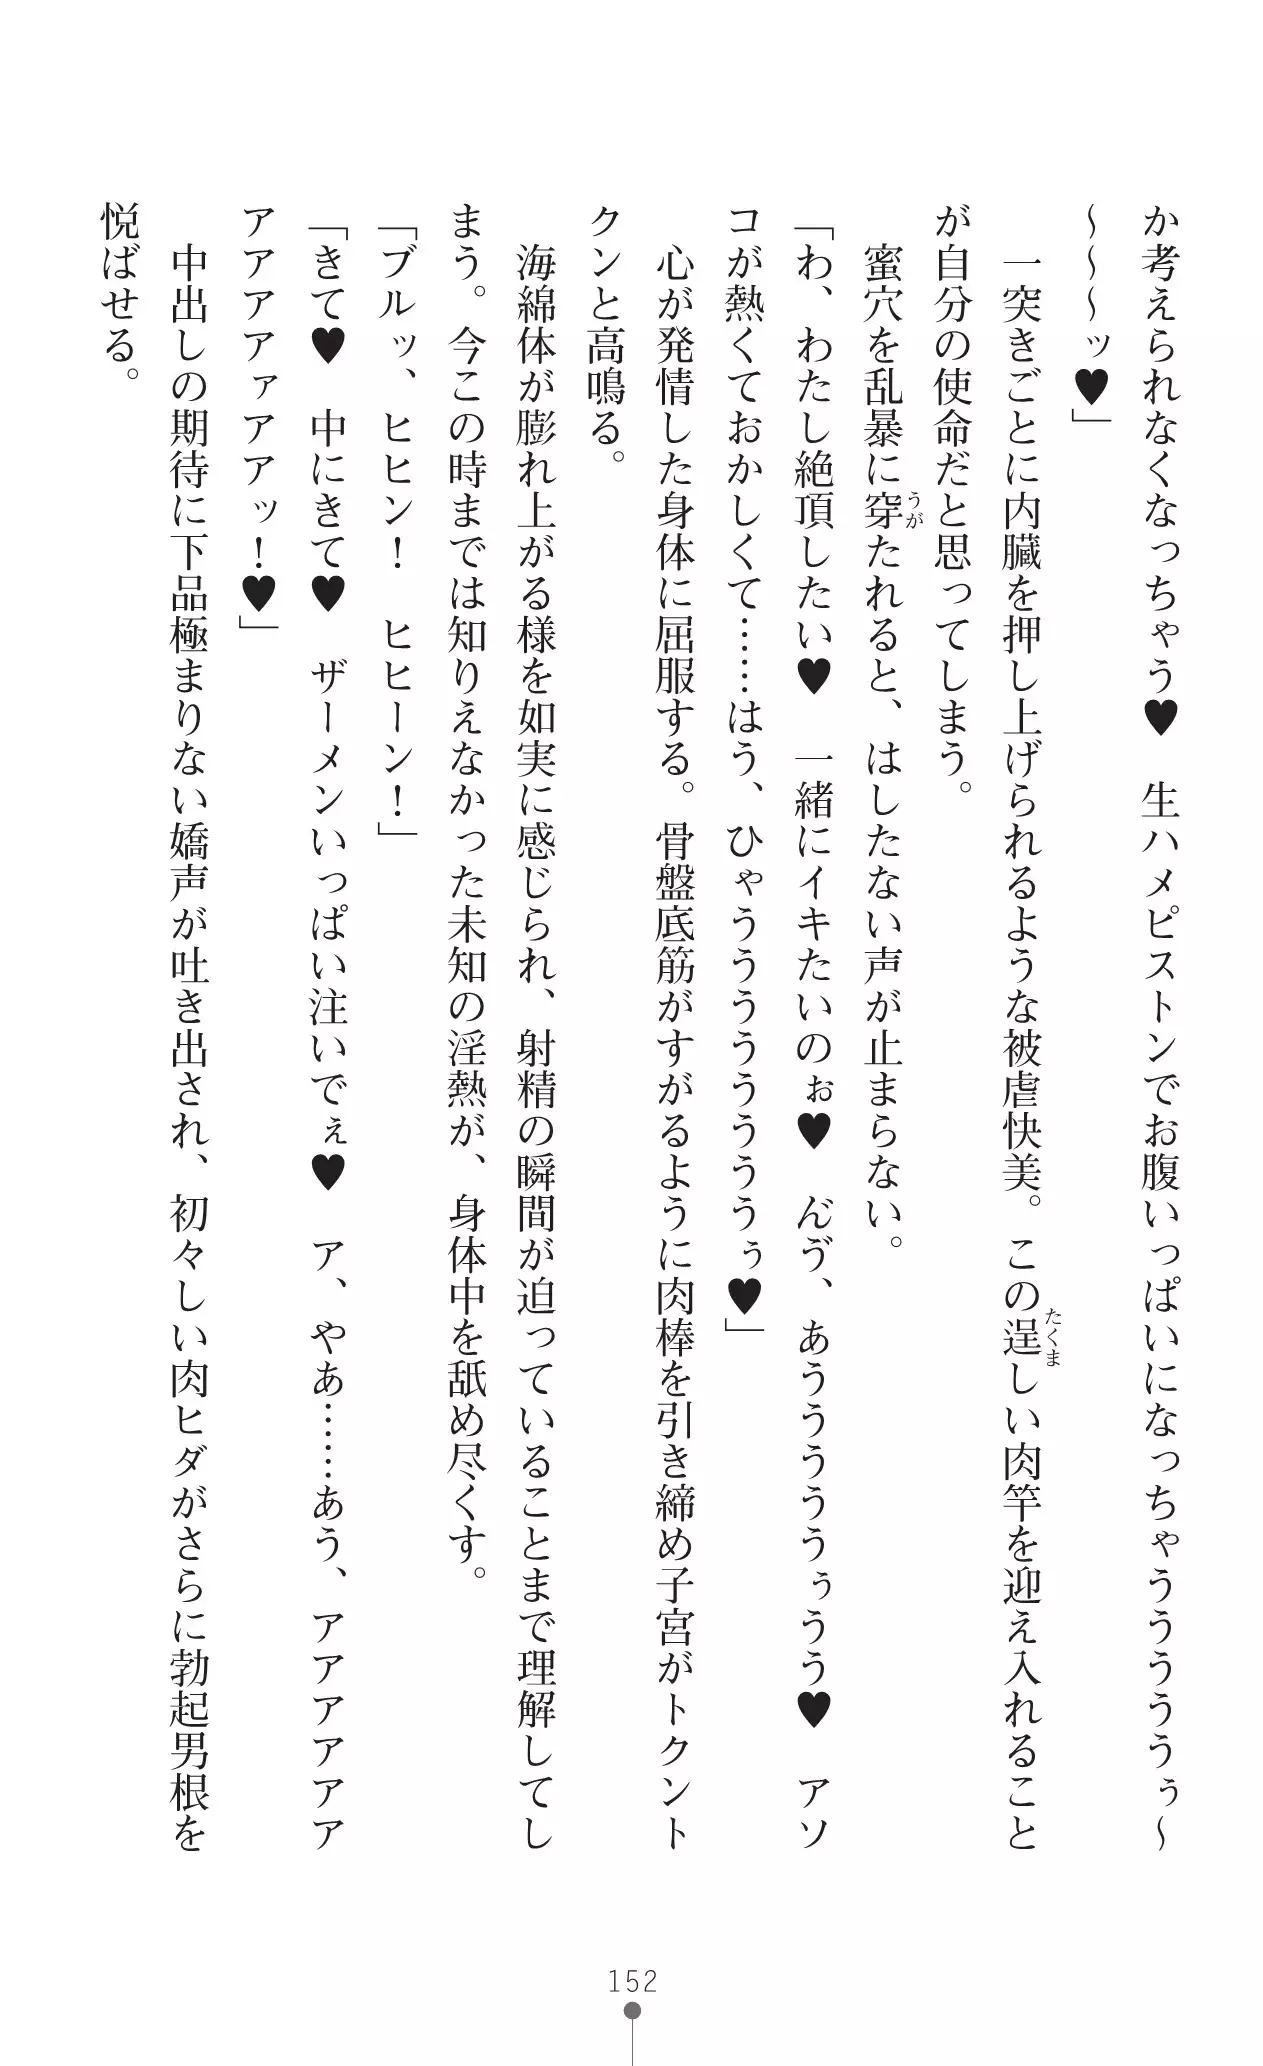 か考えられなくなっちゃう♥　生ハメピストンでお腹いっぱいになっちゃうううううぅ～
～～～ッ♥」
　一突きごとに内臓を押し上げられるような被虐快美。この逞しい肉竿を迎え入れること
たくま
が自分の使命だと思ってしまう。
　蜜穴を乱暴に穿たれると、はしたない声が止まらない。
うが
「わ、わたし絶頂したい♥　一緒にイキたいのぉ♥　ん゛ヴ、あううううううぅうう♥　アソ
コが熱くておかしくて……はう、ひゃうううううううぅ♥」
　心が発情した身体に屈服する。骨盤底筋がすがるように肉棒を引き締め子宮がトクント
クンと高鳴る。
　海綿体が膨れ上がる様を如実に感じられ、射精の瞬間が迫っていることまで理解してし
まう。今この時までは知りえなかった未知の淫熱が、身体中を舐め尽くす。
「ブルッ、ヒヒン！　ヒヒーン！」
「きて♥　中にきて♥　ザーメンいっぱい注いでぇ♥　ア、やあ……あう、アアアアアア
アアアアァアアッ！♥」
　中出しの期待に下品極まりない嬌声が吐き出され、初々しい肉ヒダがさらに勃起男根を
悦ばせる。
152